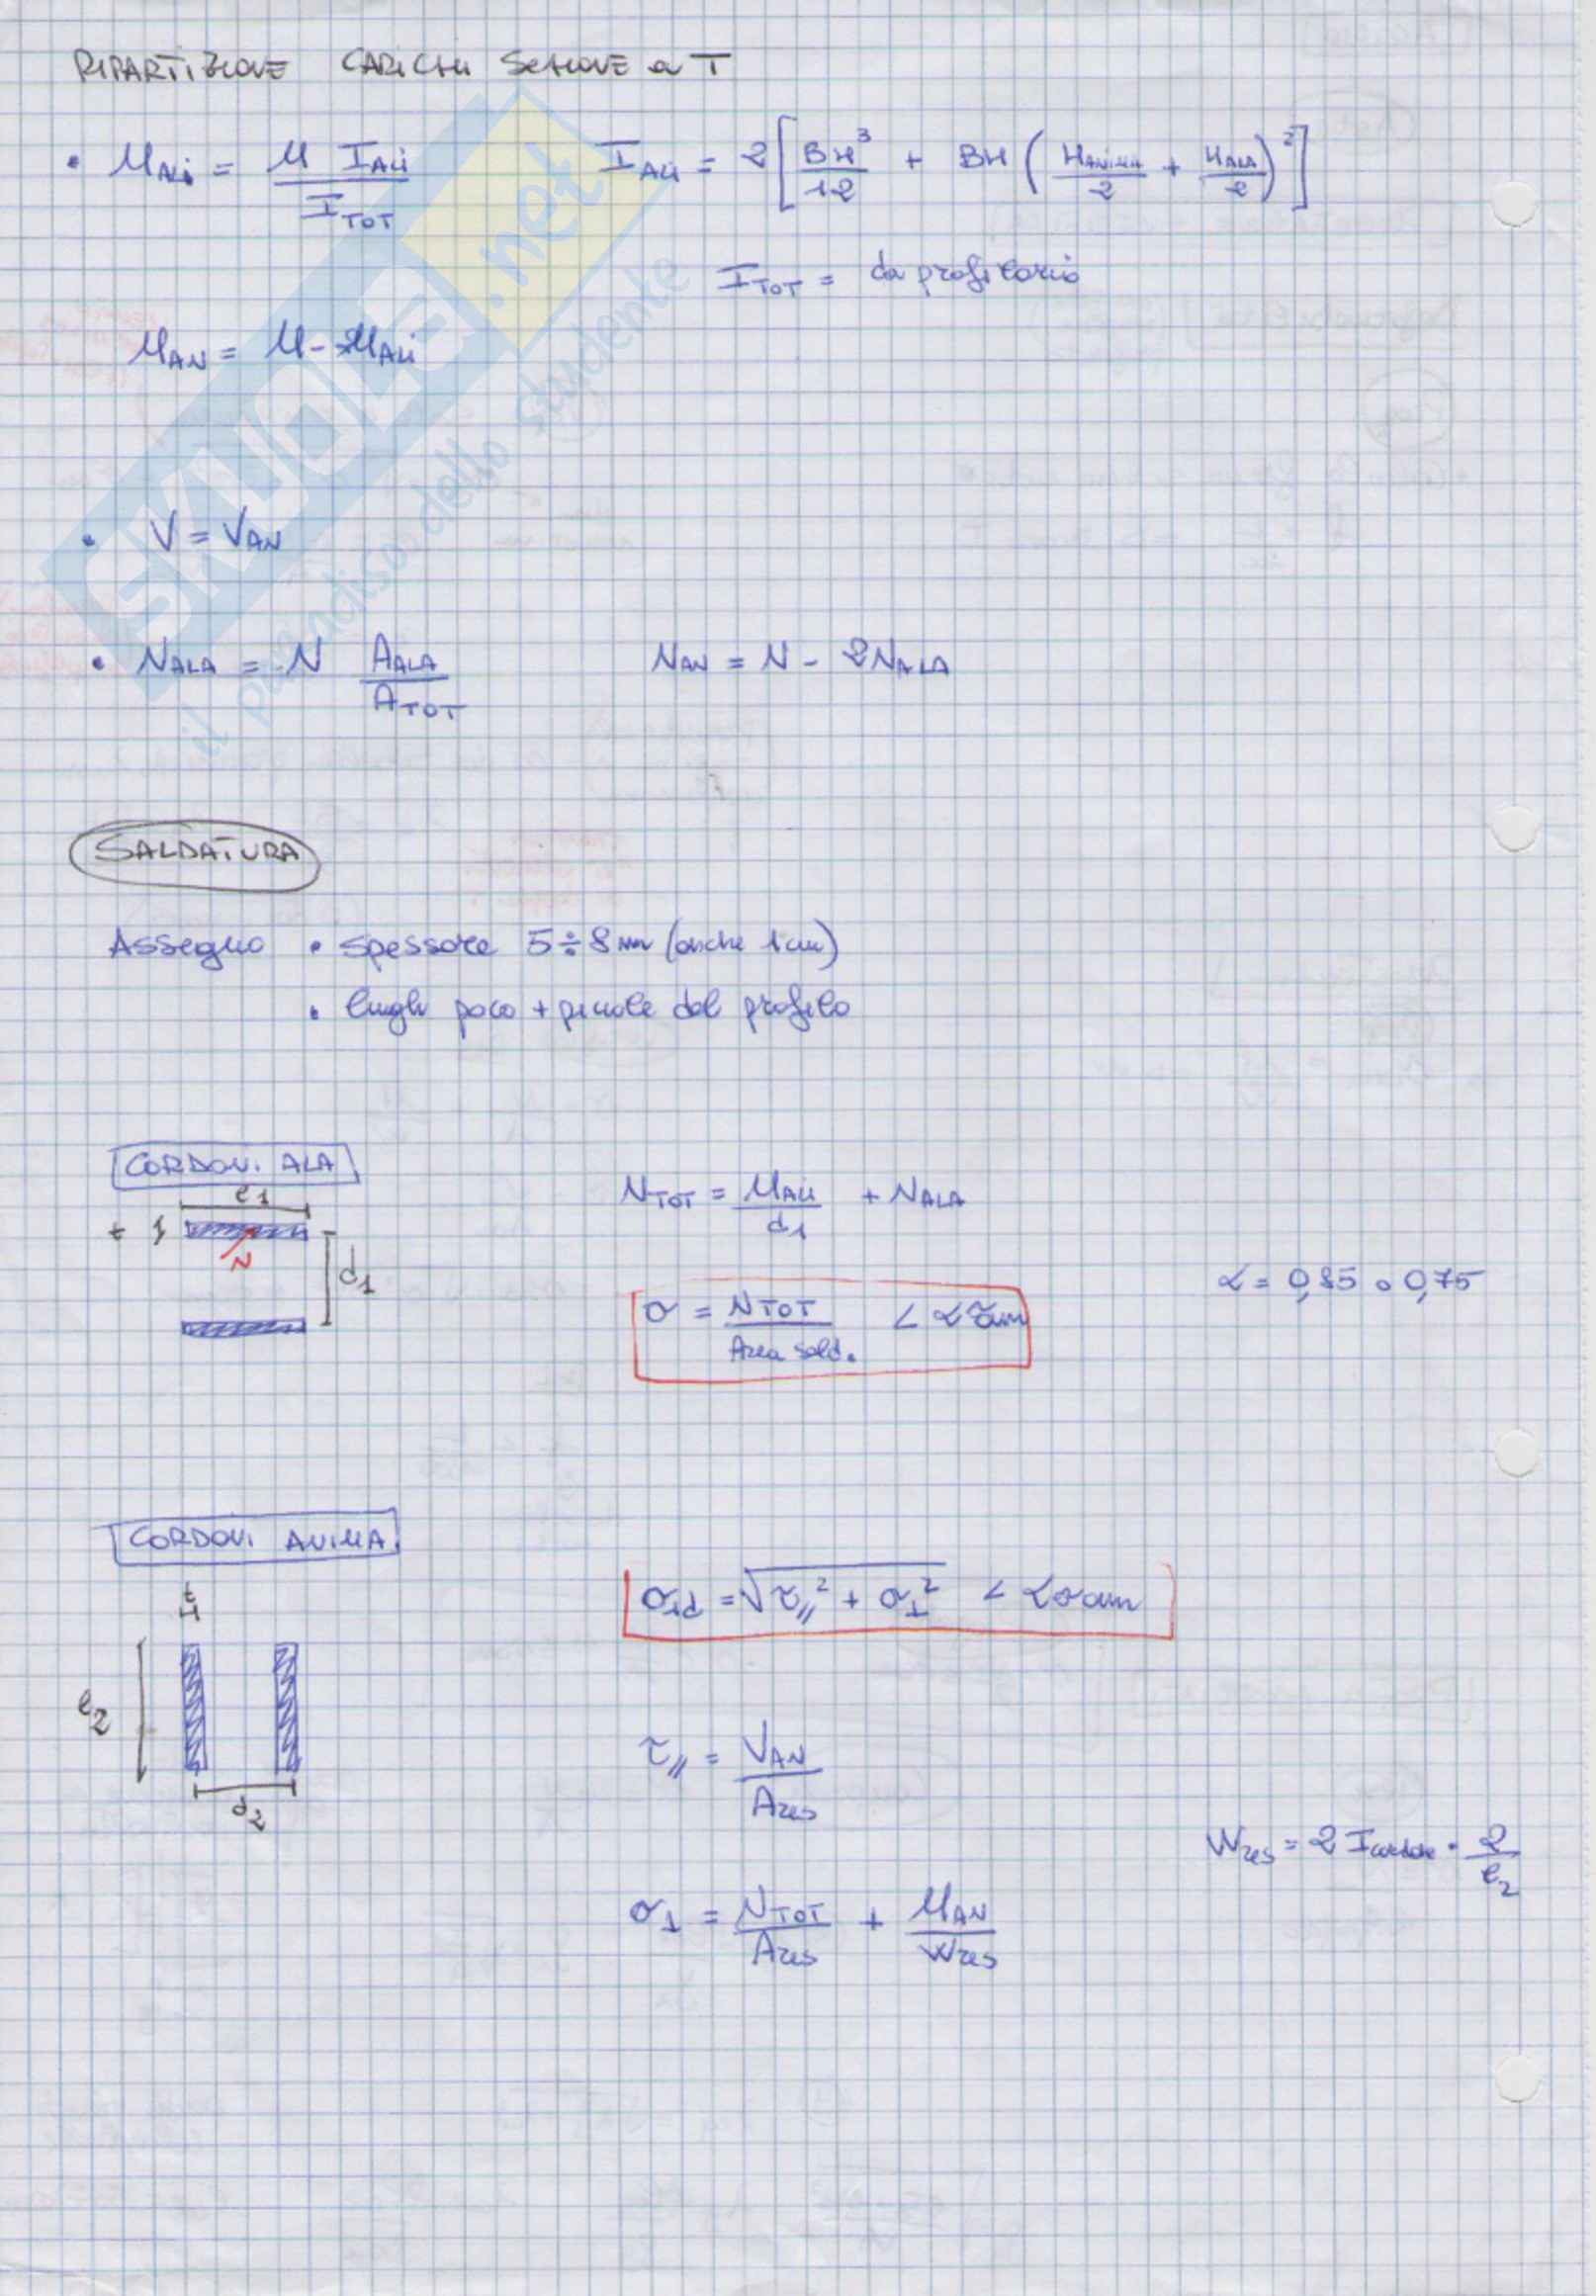 RIPARTIZIONE CARICHI SEZIONE a T
• M_ALI = M I_ALI / I_TOT    I_ALI = 2 [ BH³/12 + BH ( H_ANIMA/2 + H_ALA/2 )² ]
I_TOT = da profilario
M_AN = M - M_ALI
• V = V_AN
• N_ALA = N A_ALA / A_TOT    N_AN = N - 2N_ALA
SALDATURA
Assegno • spessore 5÷8 mm (anche 1 cm)
• lungh poco + piccole del profilo
CORDONI ALA
l1
t
N
d1
N_TOT = M_ALI / d1 + N_ALA
σ = N_TOT / Area sald. < α σ_am
α = 0,85 o 0,75
CORDONI ANIMA
t
l2
d2
σ_id = √(τ_//² + σ_⊥²) < α σ_am
τ_// = V_AN / A_res
W_res = 2 I_cordone · 2 / l2
σ_⊥ = N_TOT / A_res + M_AN / W_res
SKUOLA.net
il paradiso dello studente